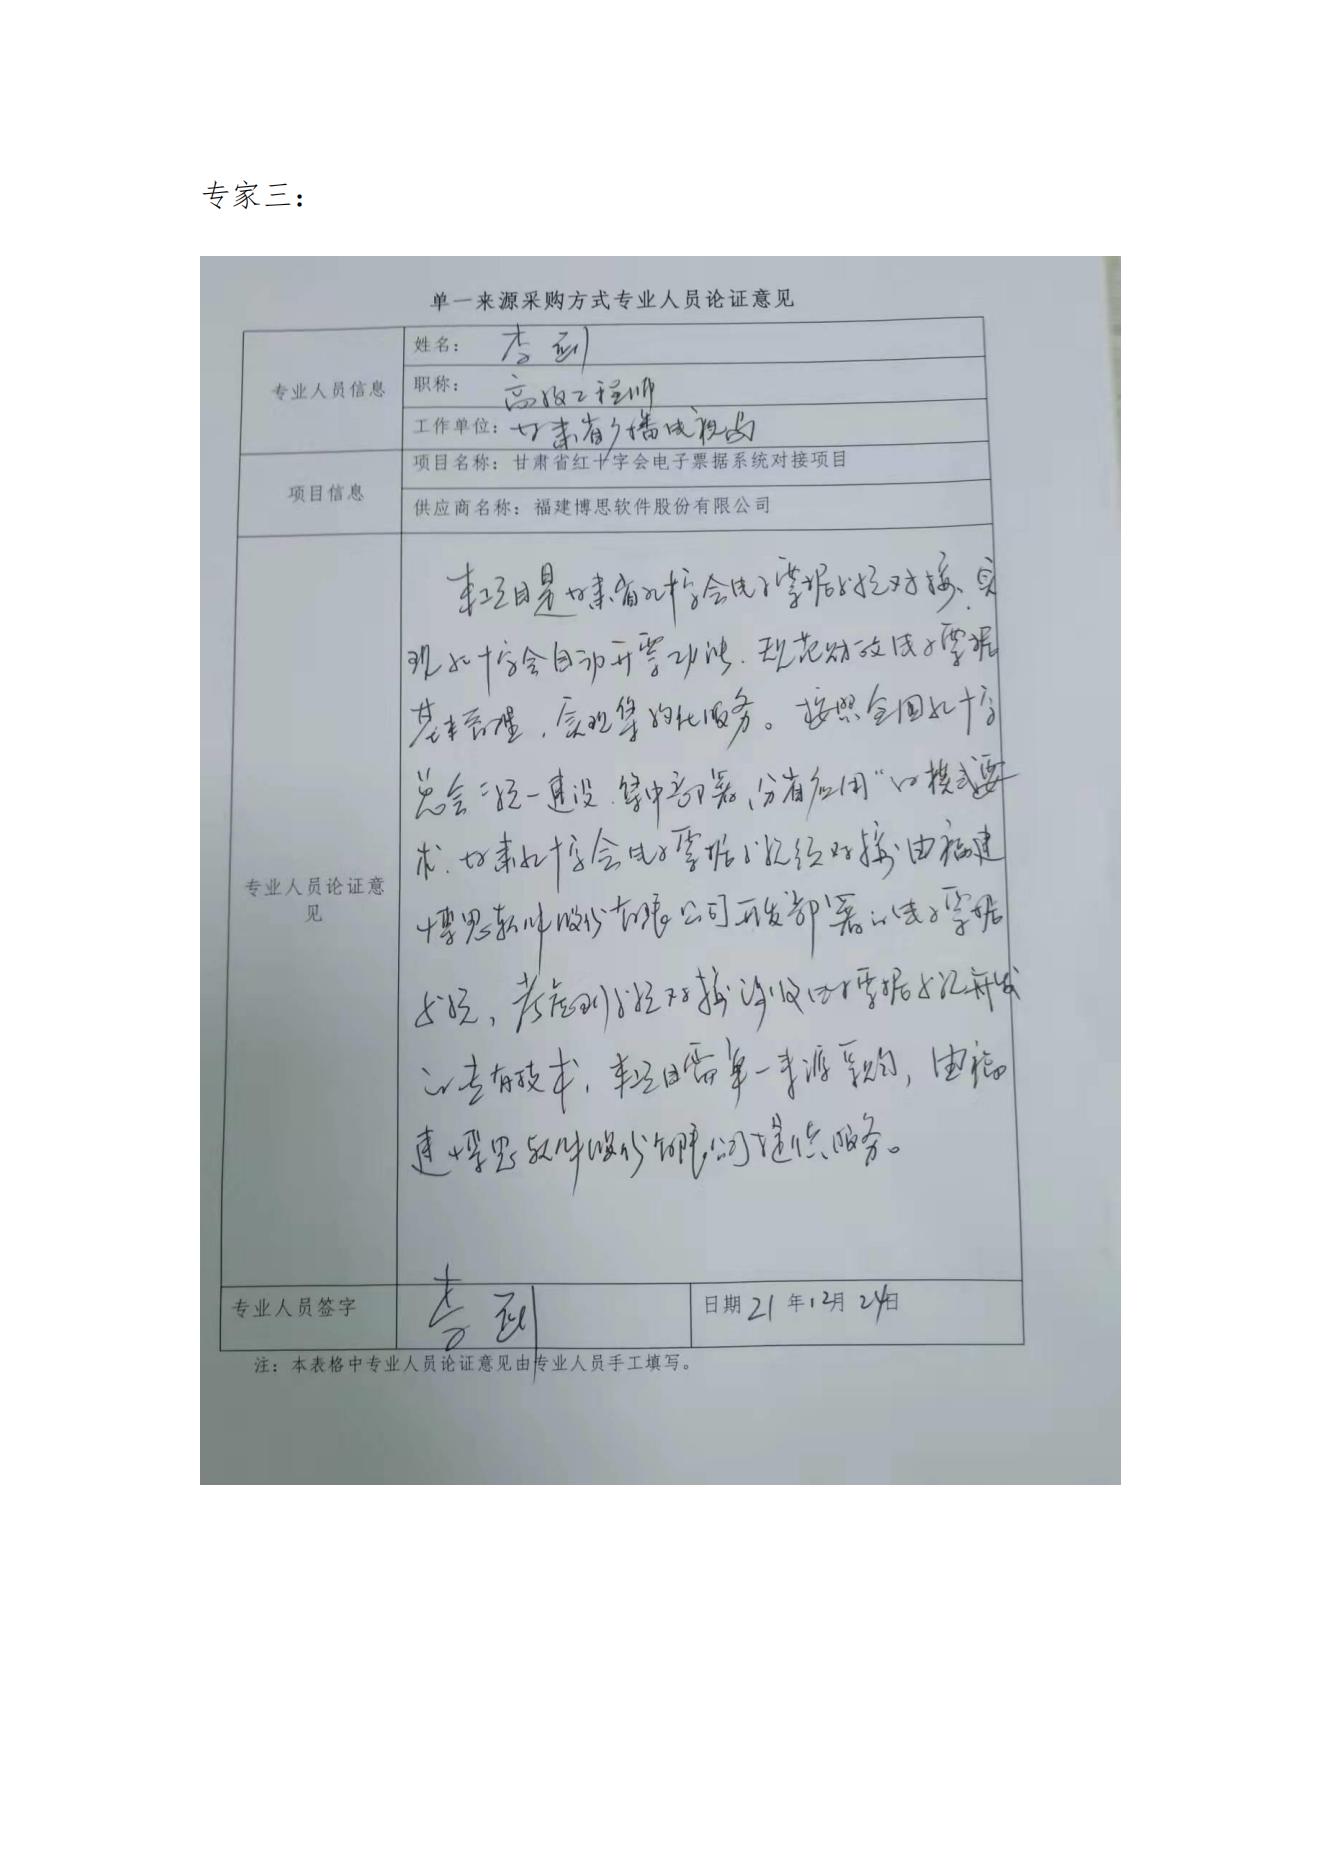 专家三：
单一来源采购方式专业人员论证意见
专业人员信息
姓名：李
职称：高级工程师
工作单位：甘肃省广播电视局
项目信息
项目名称：甘肃省红十字会电子票据系统对接项目
供应商名称：福建博思软件股份有限公司
专业人员论证意见
本项目是甘肃省红十字会电子票据系统对接、实
现红十字会自动开票功能、规范财政电子票据
基本管理，实现集约化服务。按照全国红十字
总会"统一建设、集中部署、分省应用"的模式要
求、甘肃红十字会电子票据系统须对接由福建
博思软件股份有限公司开发部署的电子票据
系统，考虑到系统对接涉及电子票据系统开发
的专有技术，本项目需单一来源采购，由福
建博思软件股份有限公司提供服务。
专业人员签字
李
日期 21 年 12月 24日
注：本表格中专业人员论证意见由专业人员手工填写。